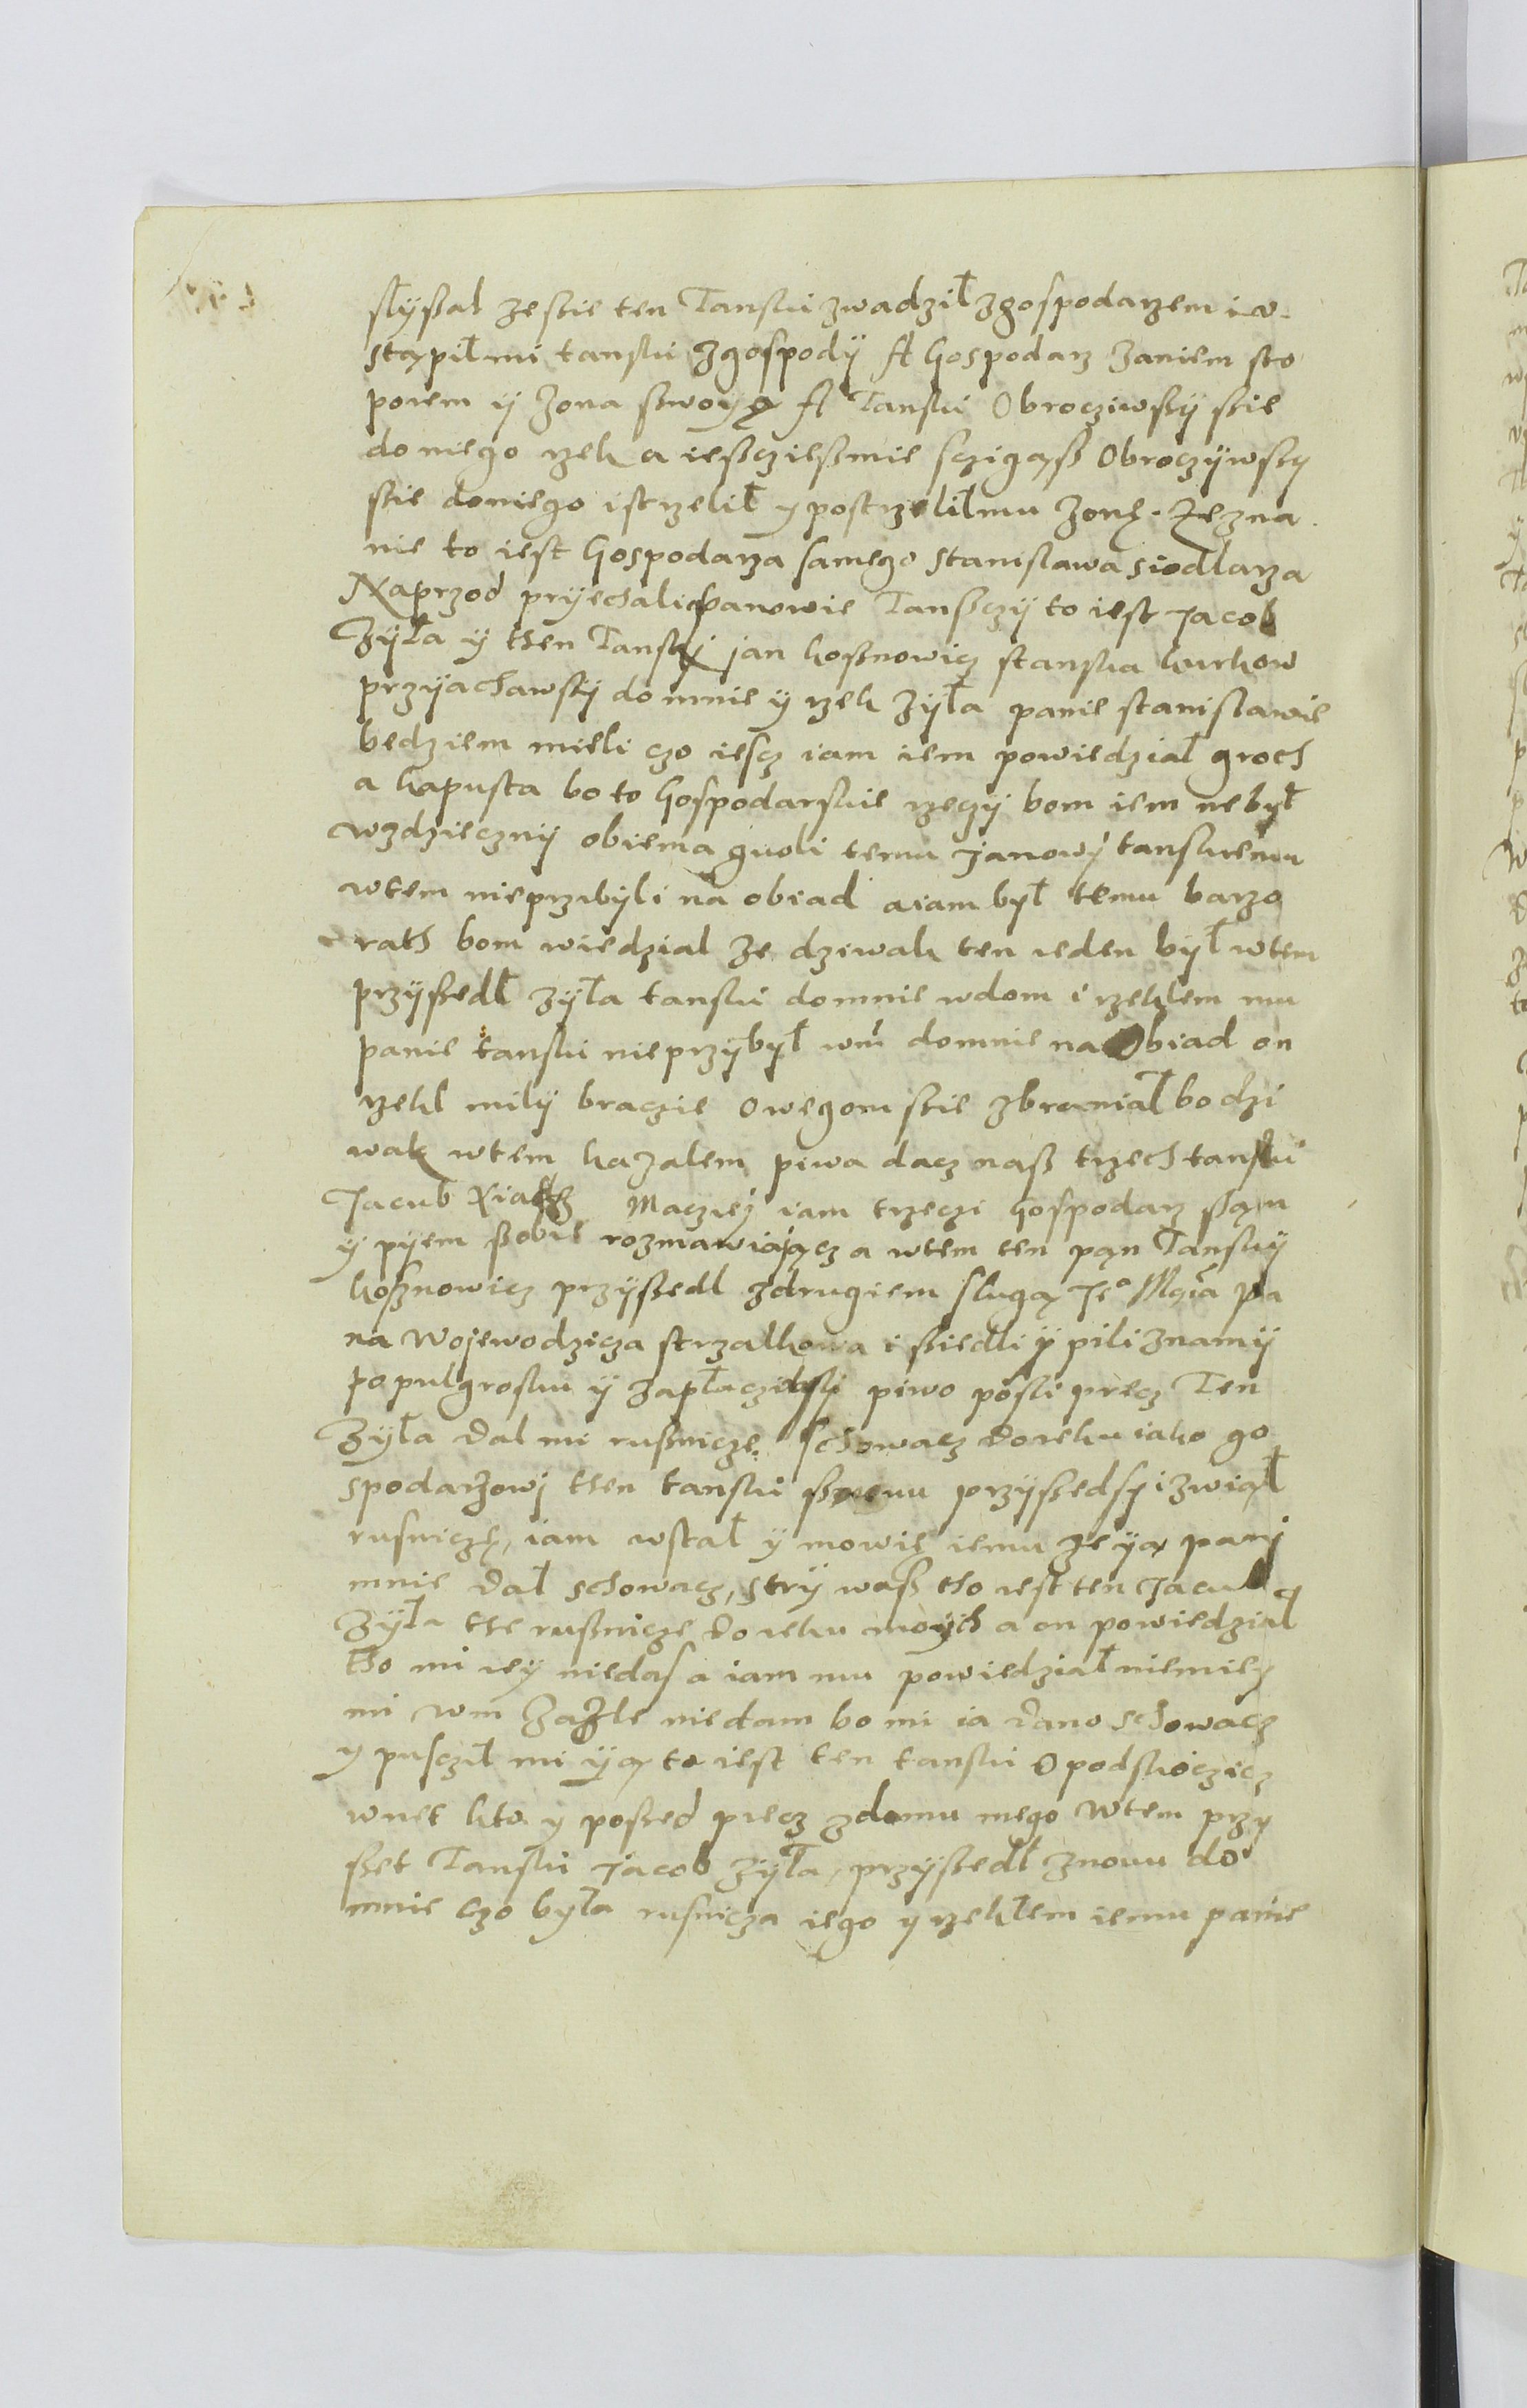 slyßal ze sie ten Tanski zwadzil z gospodarzem i w
stąpil mi tanski z gospody A Gospodarz za niem sto
porem y zona swoyą A Tanski Obrocziwsży sie
do niego rzek a ieszczießmie sczigaß Obroczywszy
sie do niego i strzelił y postrzelił mu zonę. Zezna
nie to iest Gospodarza samego Stanislawa Siodlarza
Naprzod pryiechali Panowie Tansczy to iest Jacob
Zyła y then Tansky jan koßnowicz stanska kurkow
przyachawszy do mnie y rzek Zyła panie stanislawie
bedziem mieli czo iescz iam iem powiedział groch
a kapusta bo to Gospodarskie rzeczy bom iem nebył
wzdzięczny obiema gwoli temu Janowy tanskiemu
wtem nieprzibyli na obiad a iam był temu barzo
rath bom wiedzial ze dziwak ten ieden był wtem
przyßedł Zyła tanski do mnie w dom i rzekłem mu
panie tanski nieprzybył wm do mnie na Obiad on
rzekl mily braczie owegom sie zbraniał bo dzi
wak wtem kazalem piwa dacz naß trzech tanski
Jacub Xiadz Macziej iam trzeczi Gospodarz sąm
y pyem sobie rozmawiaiącz a wtem ten pąn Tansky
koßnowicz przyßedl z drugiem slugą Je° Mczi pa
na Wojewodzicza strzalkowa i siedli y pili z namy
po pulgrosku y zapłacziwsy piwo posli precz Ten
Zyła dal mi rusnicze. schowacz do reku iako go
spodarzowj then tanski przyßedsy i zwiął
rusniczę, iam wstał y mowię iemu ze yą panj
mnie dał schowacz, stry waß tho iest ten Jacub
Zyła the rußnicze do reku moych a on powiedział
tho mi iey niedas a iam mu powiedział niemiey
mi wm za zle niedam bo mi ia dano schowacz
y pusczil mi yą to iest ten tanski O podskoczicz
wnet y posied precz z domu mego Wtem przy
ßet Tanski Jacob Zyła, przyßedł znowu do
mnie czo była rusnicza iego y rzekłem iemu panie